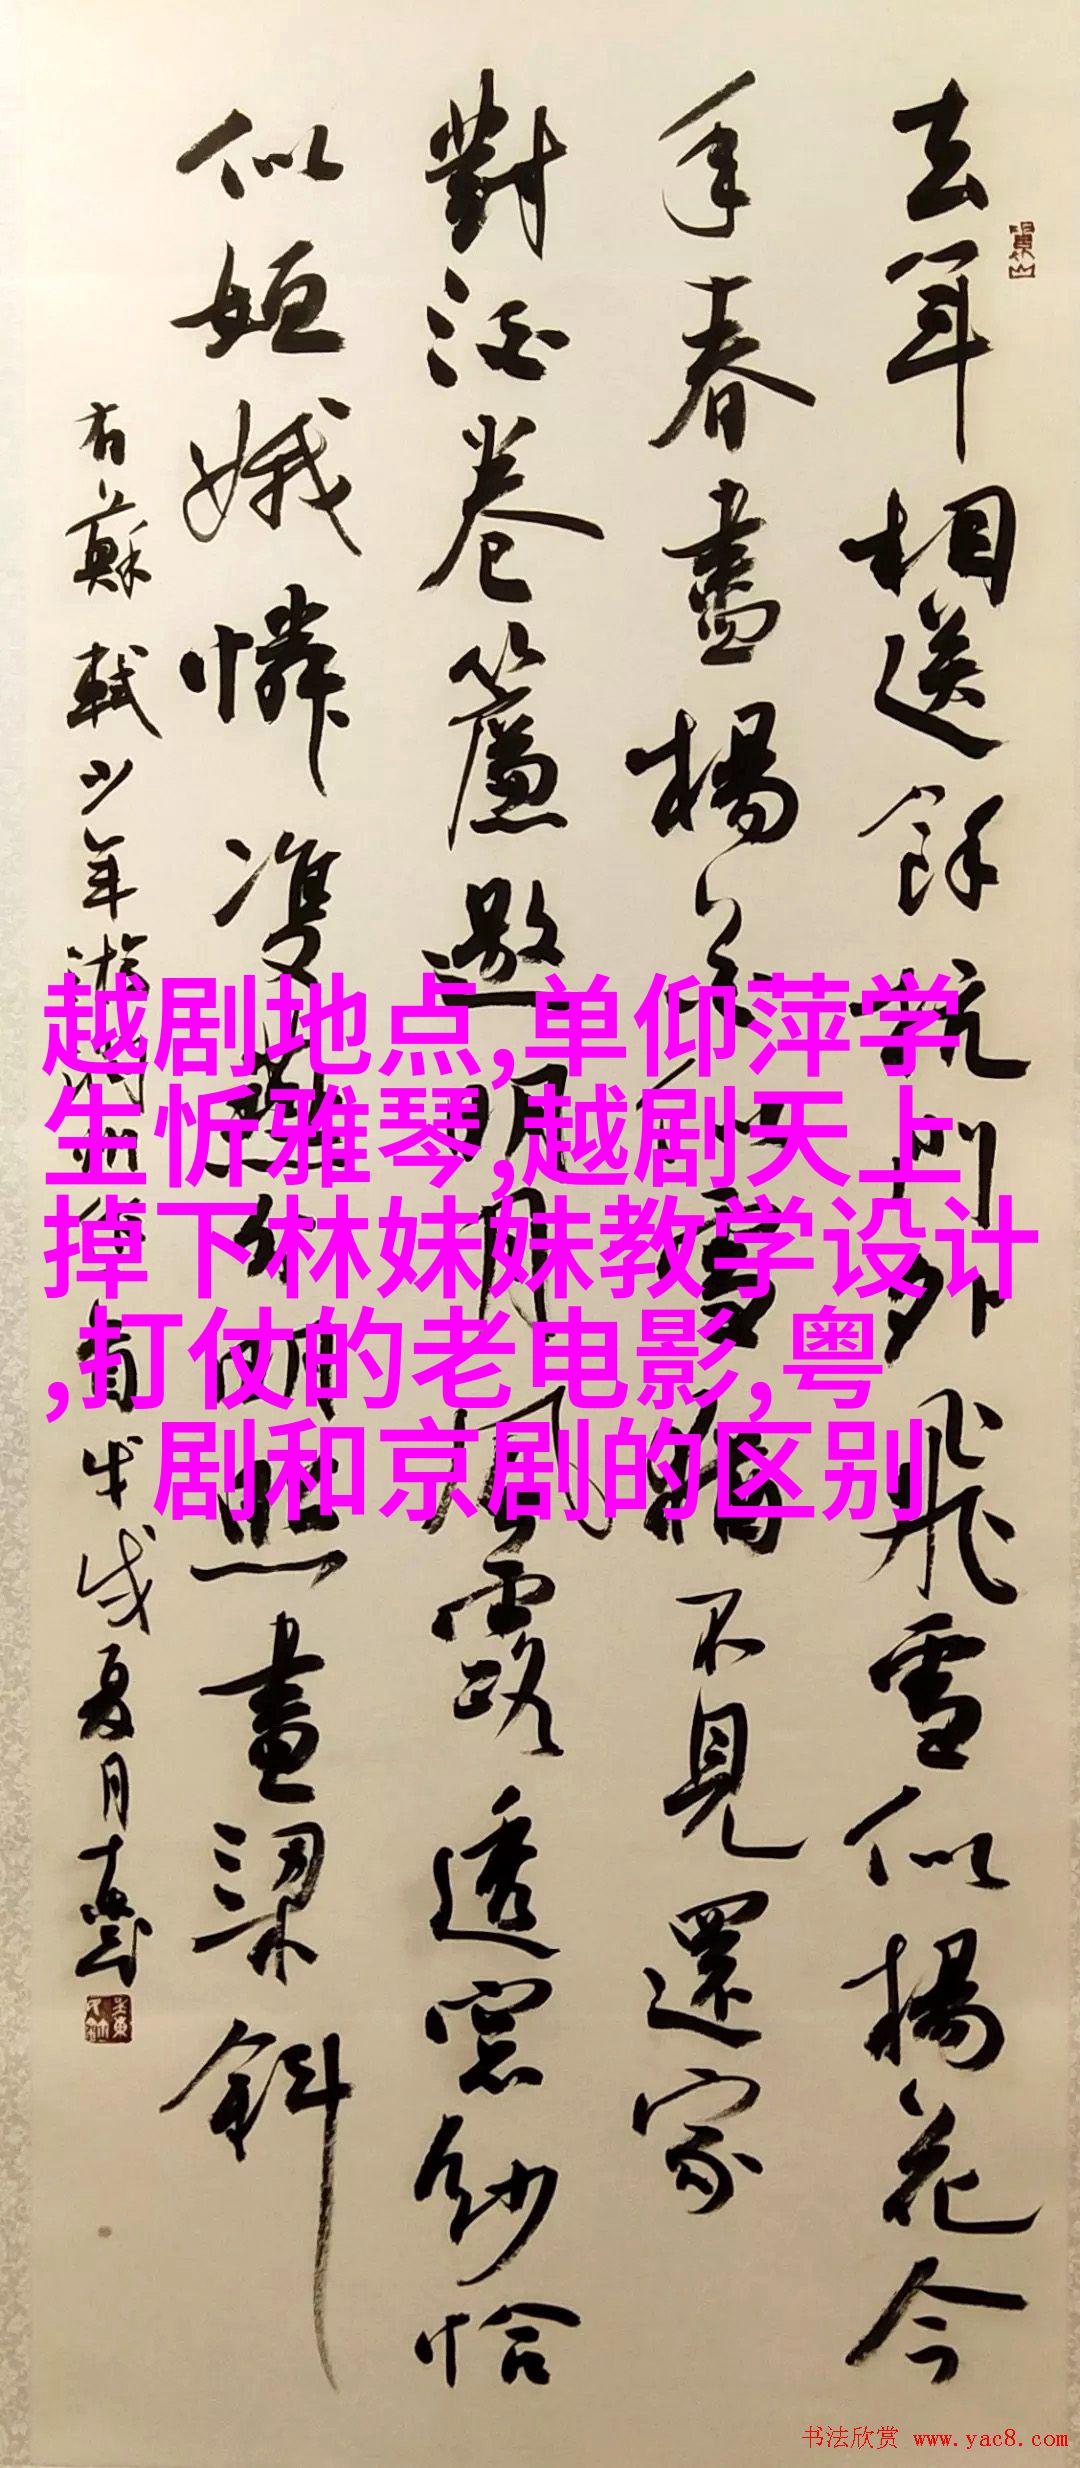 去年相送餘杭門外飛雪似楊花今
年春盡楊花似雪猶不見還家
對酒卷簾邀明月風露透窓紗恰
似姮娥憐雙燕分明照畫梁斜
右蘇軾少年游潤州作 戊戌夏月
越剧地点,单仰萍学
生忻雅琴,越剧天上
掉下林妹妹教学设计
,打仗的老电影,粤
剧和京剧的区别
书法欣赏 www.yac8.com